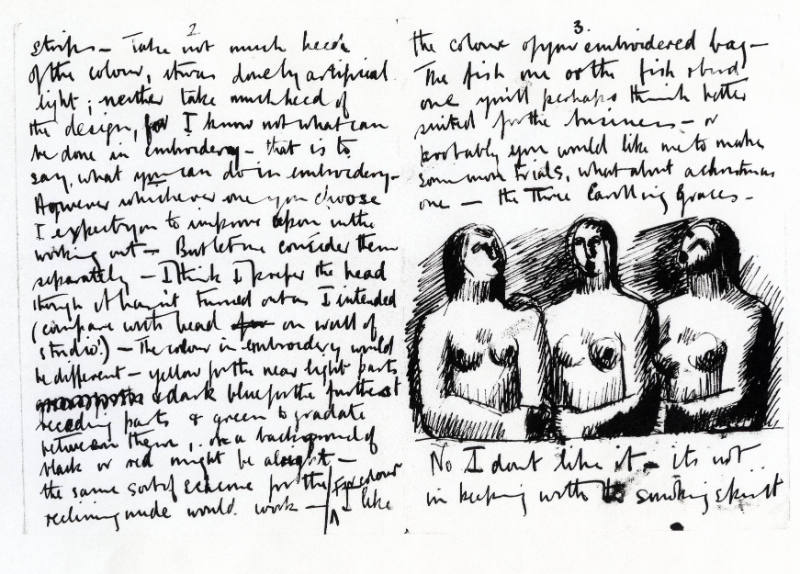 2
strips – Take not much heed
of the colour, it was done by artificial
light; neither take much heed of
the design, for I know not what can
be done in embroidery – that is to
say, what you can do in embroidery –
However whichever one you choose
I expect you to improve upon in the
working out – But let me consider them
separately – I think I prefer the head
though it hasn't turned out as I intended
(compare with head on wall of
studio!) – The colour in embroidery would
be different – yellow for the near light parts
& dark blue for the furthest
receding parts & green to gradate
between them, on a background of
black or red might be alright –
the same sort of scheme for the
reclining nude would work – for colour like
3.
the colour of your embroidered bag –
The fish one or the fish & bird
one you'll perhaps think better
suited for the business – or
probably you would like me to make
some more trials, what about a christmas
one – the Three Carolling Graces –
No I don't like it – its not
in keeping with smoking